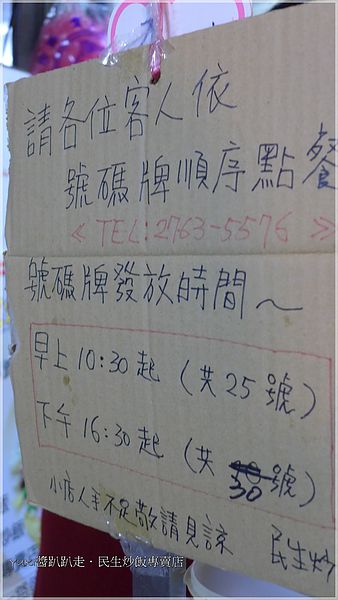 請各位客人依
號碼牌順序點餐
《TEL:2763-5576》
號碼牌發放時間～
早上10:30起（共25號）
下午16:30起（共30號）
小店人手不足敬請見諒 民生炒
醬趴趴走·民生炒飯專賣店